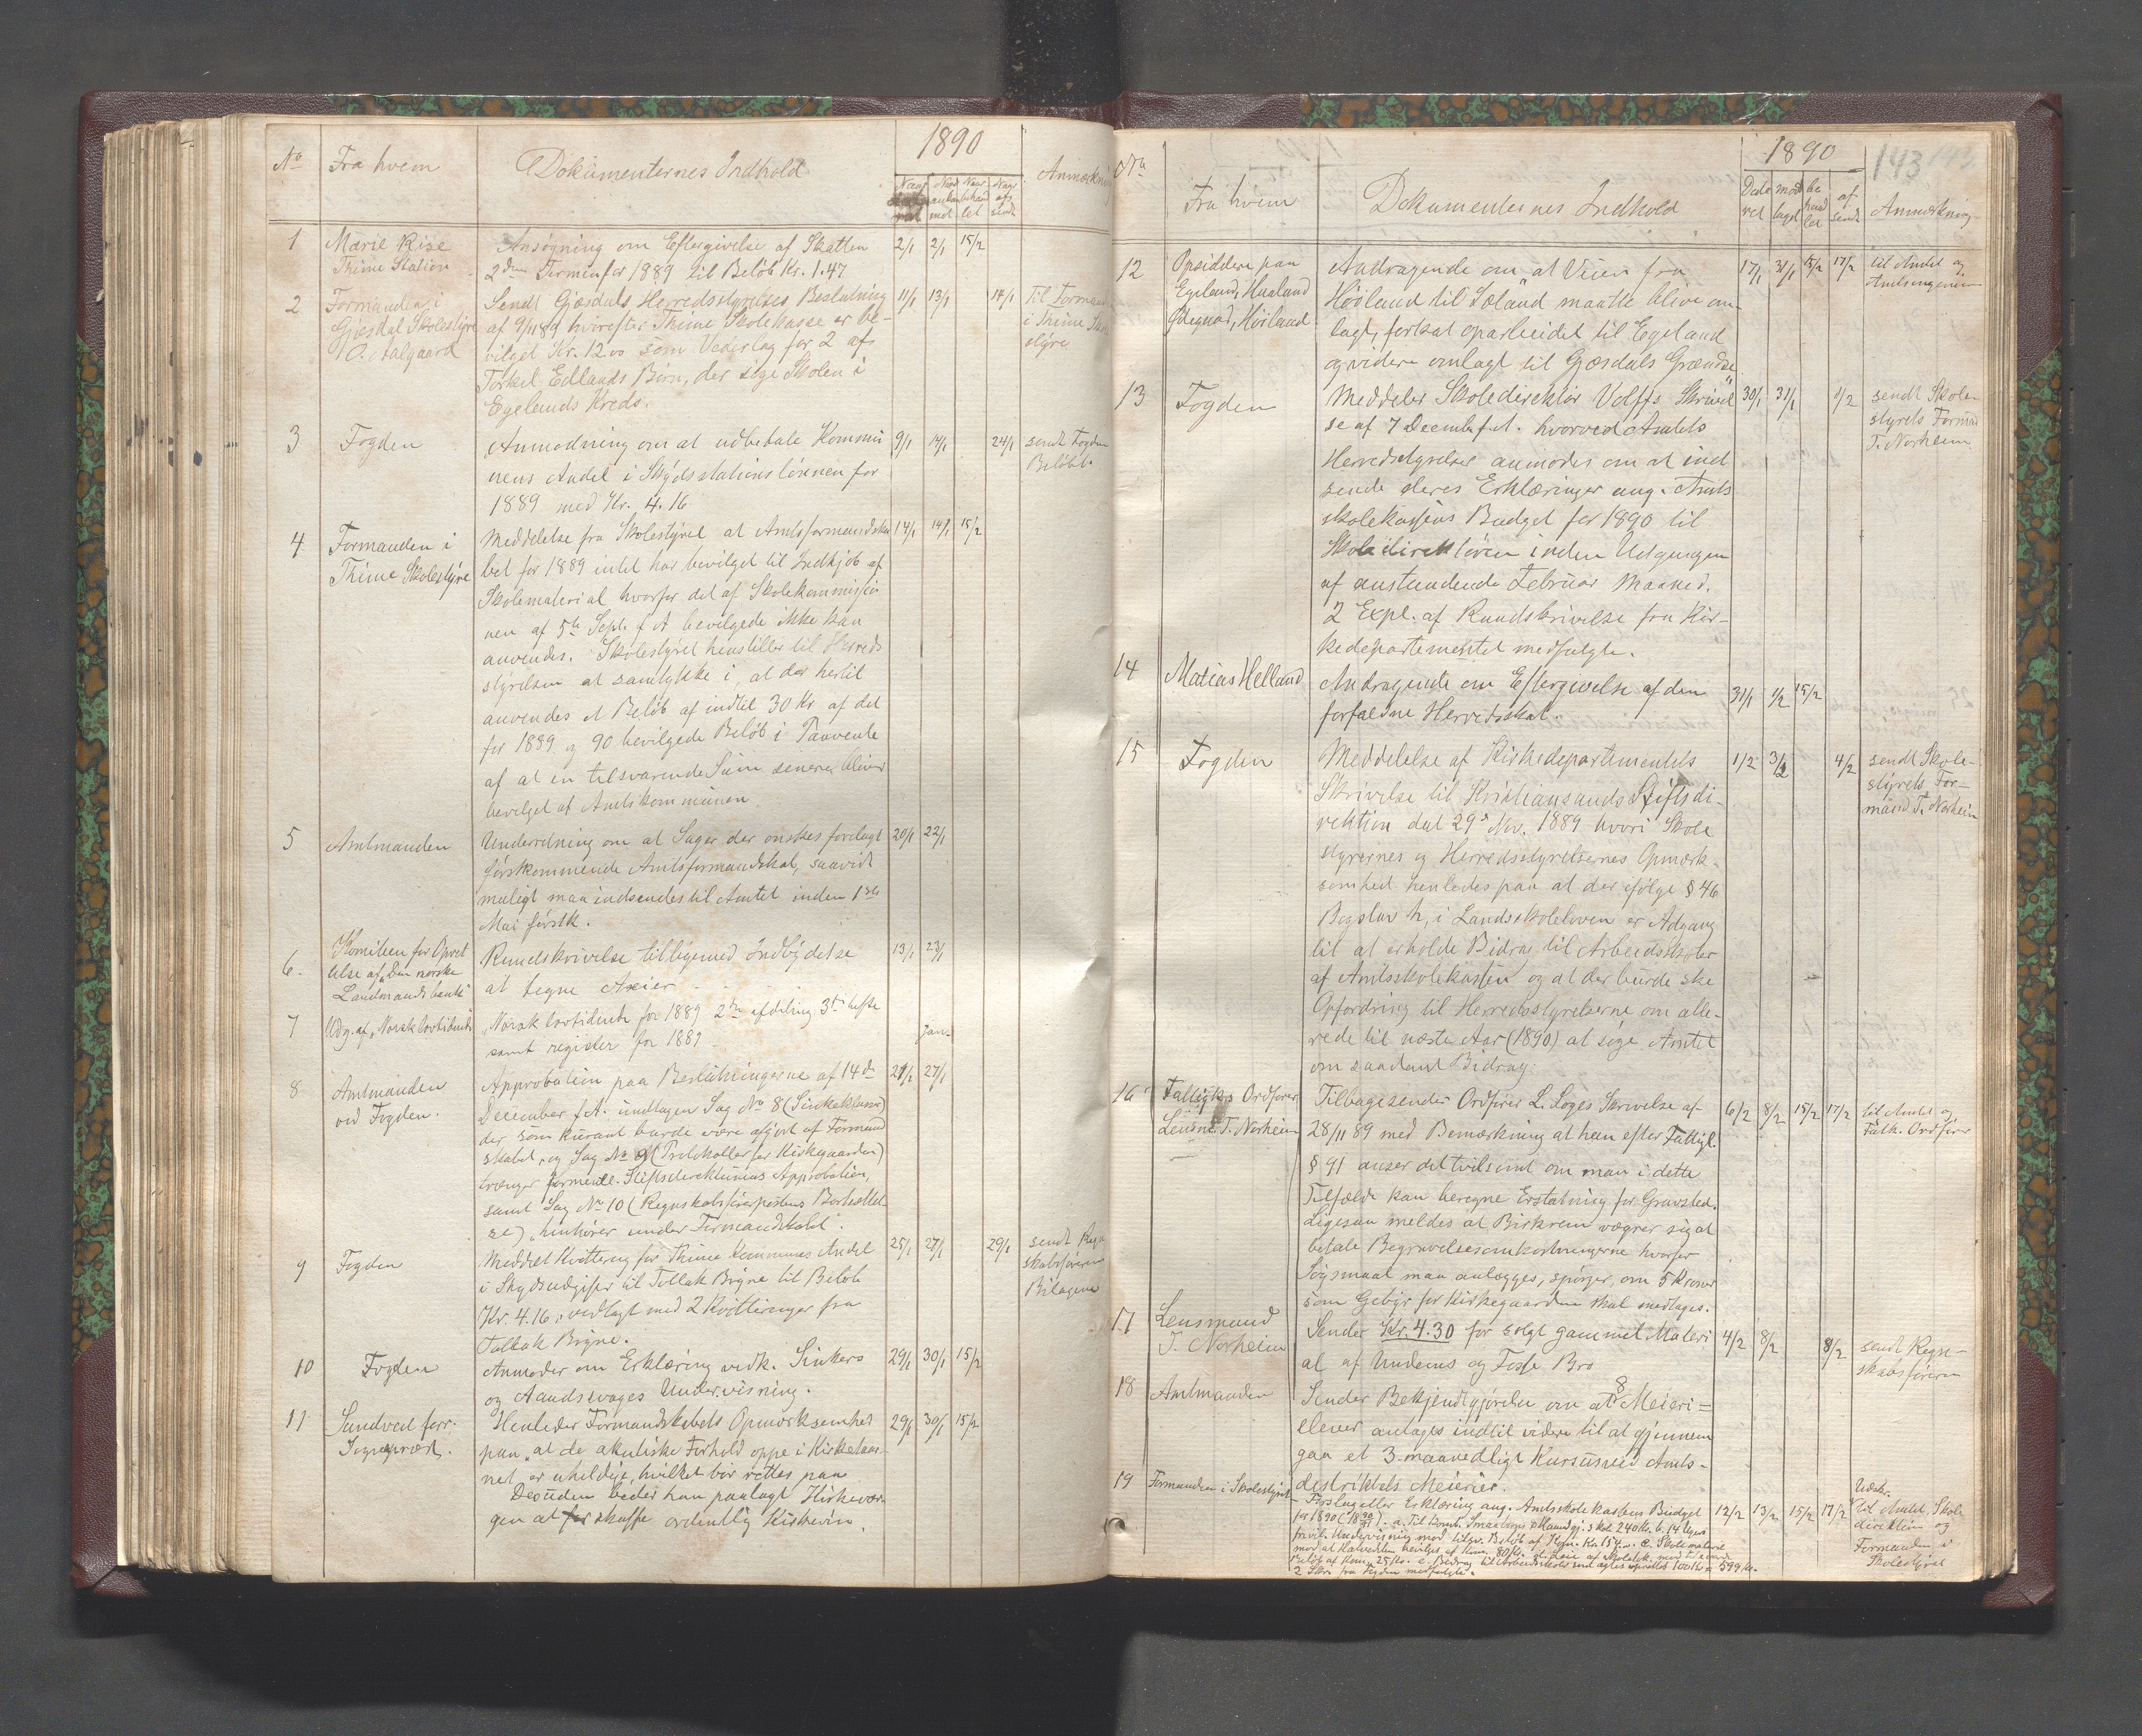 1890
No Fra hvem Dokumenternes Indhold Anmærkning
1 Marie Rise Ansøgning om Eftergivelse af Skatten 2/1 2/1 15/2
Thime Station 2den Termin for 1889 til Beløb Kr. 1.47
2 Formanden i Sendt Gjæsdals Herredsstyrelses Beslutning 11/1 13/1 14/1 Til Formand
Gjæsdal Skolestyre af 9/11 89 hvorefter Thime Skolekasse er be- i Thime Sko
O. Aalgaard vilget Kr. 12.00 som Vederlag for 2 af styre
Torkel Edlands Børn, der søge Skolen i
Egelands Kreds.
3 Fogden Anmodning om at udbetale Kommu 9/1 14/1 24/1 sendt Fogden
nens Andel i Skydsstationslønnen for Beløbet.
1889 med Kr. 4.16
4 Formanden i Meddelelse fra Skolestyret at Amtsformandska 14/1 14/1 15/2
Thime Skolestyre bet for 1889 intet har bevilget til Indkjøb af
Skolemateriel hvorfor det af Skolekommissio
nen af 5te Sept. f A bevilgede ikke kan
anvendes. Skolestyret henstiller til Herreds
styrelsen at samtykke i, at der hertil
anvendes et Beløb af indtil 30 Kr af det
for 1889 og 90 bevilgede Beløb i Paavente
af at en tilsvarende Sum senere bliver
bevilget af Amtskommunen.
5 Amtmanden Underretning om at Sager der ønskes forelagt 20/1 22/1
førstkommende Amtsformandskab, saavidt
muligt maa indsendes til Amtet inden 1ste
Mai førstk.
6. Komiteen for Opret Rundskrivelse tilligemed Indbydelse 13/1 23/1
telse af "Den norske at tegne Axier
Landmandsbank"
7 Udg. af "Norsk lovtidende" "Norsk lovtidende for 1889 2den afdeling 3die hefte Jan.
samt register for 1889
8 Amtmanden Approbation paa Beslutningerne af 14de 21/1 27/1
ved Fogden. December f.A. undtagen Sag No 8 (Sinkeklasser)
der som kurant burde være afgjort af Formand
skabet, og Sag No 9 (Protokoller for Kirkegaarden)
trænger formentl. Stiftsdirektionens Approbation,
samt Sag No 10 (Regnskabsførerpostens Bortsættel-
se) "henhører under Formandskabet".
9 Fogden Meddelt Kvittering for Thime Kommunes Andel 25/1 27/1 29/1 sendt Regn
i Skydsudgifter til Tollak Bryne til Beløb skabsføreren
Kr. 4.16, vedlagt med 2 Kvitteringer fra Bilagene
Tollak Bryne.
10 Fogden Anmoder om Erklæring vedk. Sinkers 29/1 30/1 15/2
og Aandssvages Undervisning.
11 Sandved forr. Henleder Formandskabets Opmærksomhed 29/1 30/1 15/2
Sognepræst. paa "at de akustiske Forhold oppe i Kirketaar-
net er uheldige, hvilket bør rettes paa
Desuden beder han paalagt Kirkevær-
gen at skaffe ordentlig Kirkevin.
1890 143
No Fra hvem Dokumenternes Indhold Date ret mod taget be hand let af sendt Anmærkning
12 Opsiddere paa Andragende om at Veien fra 17/1 31/1 15/2 17/2 til Amtet og
Egeland, Hualand Høiland til Søland maatte blive om- Amtsingeniøren
Ødegaard, Høiland lagt, forsat oparbeidet til Egeland
og videre omlagt til Gjæsdals Grændse
13 Fogden Meddeler Skoledirektør Volffs Skrivel 30/1 31/1 1/2 sendt Skole-
se af 7 Decemb f.A. hvorved Amtets styrets Formand
Herredsstyrelser anmodes om at ind T. Norheim
sende deres Erklæringer ang. Amts
skolekassens Budget for 1890 til
Skoledirektøren inden Udgangen
af anstundende Februar Maaned.
2 Expl. af Rundskrivelse fra Kir-
kedepartementet medfulgte.
14 Matias Helland Andragende om Eftergivelse af den 31/1 1/2 15/2
forfaldne Herredsskat.
15 Fogden Meddelelse af Kirkedepartementets 1/2 3/2 4/2 sendt Skole-
Skrivelse til Kristiansands Stiftsdi- styrets For-
rektion dat 29de Nov. 1889 hvori Skole mand T. Norheim
styrernes og Herredsstyrelsernes Opmærk-
somhed henledes paa at der ifølge § 46
Bogstav h, i Landsskoleloven er Adgang
til at erholde Bidrag til Arbeidsskoler
af Amtsskolekassen og at der burde ske
Opfordring til Herredsstyrelserne om alle-
rede til næste Aar (1890) at søge Amtet
om saadant Bidrag.
16 Fattigk. Ordfører Tilbagesender Ordfører L. Loges Skrivelse af 6/2 8/2 15/2 17/2 til Amtet og
Lensmd. T. Norheim 28/11 89 med Bemærkning at han efter Fattigl. Fatk. Ordfører
§ 91 anser det tvilsomt om man i dette
Tilfælde kan beregne Erstatning for Gravsted.
Ligesaa meldes at Birkrem vægrer sig at
betale Begravelsesomkostningerne hvorfor
Søgsmaal maa anlægges, spørger, om 5 Kroner
som Gebyr for Kirkegaarden skal medtages.
17 Lensmand Sender Kr. 4.30 for solgt gammelt Materi 4/2 8/2 8/2 sendt Regn-
T. Norheim al af Undems og Fosse Bro skabsføreren
18 Amtmanden Sender Bekjendtgjørelse om at 8 Meieri=
elever antages indtil videre til at gjennem
gaa et 3 maanedligt Kursus ved Amts-
destriktets Meierier.
19 Formanden i Skolestyret Forslag eller Erklæring ang. Amtsskolekassens Budget 12/2 13/2 15/2 17/2 Udsk. til Amtet, Skole
for 1890 direktøren og
Formanden i
Skolestyret
2 Skr. fra Fogden medfulgte. 599 Kr.